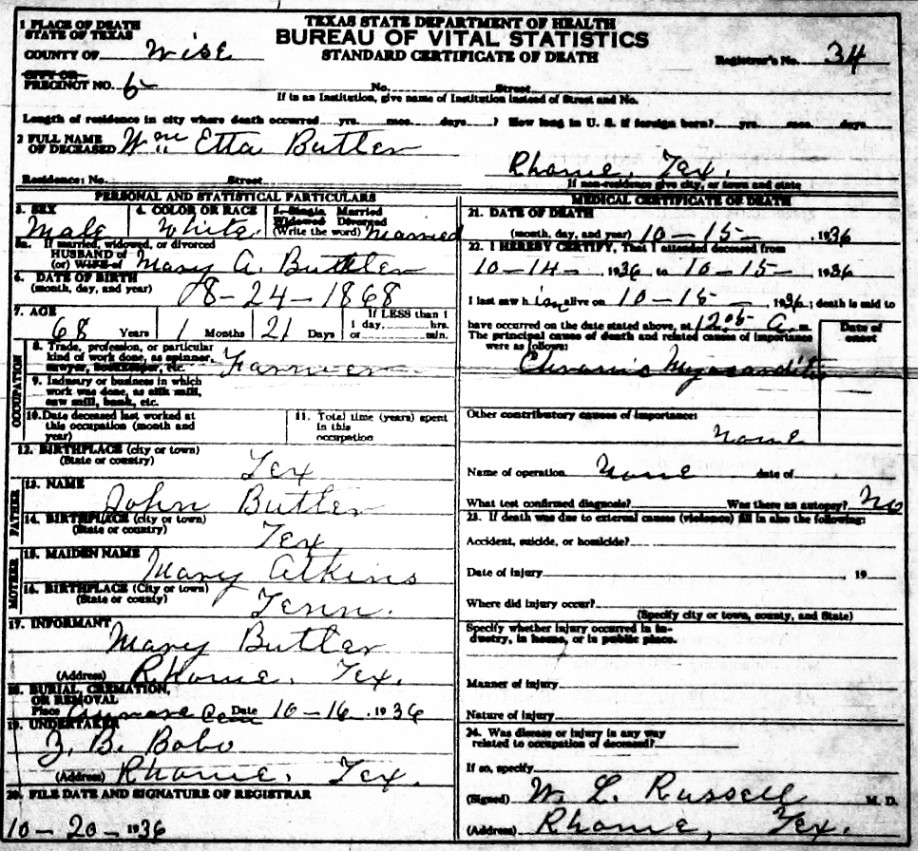 TEXAS STATE DEPARTMENT OF HEALTH
BUREAU OF VITAL STATISTICS
STANDARD CERTIFICATE OF DEATH
1 PLACE OF DEATH
STATE OF TEXAS
COUNTY OF Wise
Registrar's No. 34
CITY OR
PRECINCT NO. 6 No. Street
If in an Institution, give name of Institution instead of Street and No.
Length of residence in city where death occurred yrs. mos. days. ? How long in U. S. if foreign born? yrs. mos. days.
2 FULL NAME
OF DECEASED Wm Etta Butler
Residence: No. Street Rhome, Tex.
If non-residence give city, or town and state
PERSONAL AND STATISTICAL PARTICULARS
3. SEX Male
4. COLOR OR RACE White
5. Single Married
Widowed Divorced
(Write the word) Married
5a. If married, widowed, or divorced
HUSBAND of
(or) WIFE of Mary A. Buttler
6. DATE OF BIRTH
(month, day, and year) 8-24-1868
7. AGE 68 Years 1 Months 21 Days
If LESS than 1
1 day, hrs.
or min.
OCCUPATION
8. Trade, profession, or particular
kind of work done, as spinner,
sawyer, bookkeeper, etc. Farmer
9. Industry or business in which
work was done, as silk mill,
saw mill, bank, etc.
10. Date deceased last worked at
this occupation (month and
year)
11. Total time (years) spent
in this
occupation
12. BIRTHPLACE (city or town)
(State or country) Tex
FATHER
13. NAME John Butler
14. BIRTHPLACE (city or town)
(State or country) Tex
MOTHER
15. MAIDEN NAME Mary Atkins
16. BIRTHPLACE (City or town)
(State or county) Tenn.
17. INFORMANT Mary Butler
(Address) Rhome, Tex.
18. BURIAL, CREMATION,
OR REMOVAL
Place Cem Date 10-16, 1936
19. UNDERTAKER
Z. B. Bobo
(Address) Rhome, Tex.
20. FILE DATE AND SIGNATURE OF REGISTRAR
10-20-1936
MEDICAL CERTIFICATE OF DEATH
21. DATE OF DEATH
(month, day, and year) 10-15-, 1936
22. I HEREBY CERTIFY, That I attended deceased from
10-14-, 1936, to 10-15-, 1936
I last saw him alive on 10-15-, 1936; death is said to
have occurred on the date stated above, at 12.05 A. m.
The principal cause of death and related causes of importance
were as follows:
Date of
onset
Chronic Myocarditis
Other contributory causes of importance:
none
Name of operation None date of
What test confirmed diagnosis? Was there an autopsy? No
23. If death was due to external causes (violence) fill in also the following:
Accident, suicide, or homicide?
Date of injury , 19
Where did injury occur?
(Specify city or town, county, and State)
Specify whether injury occurred in in-
dustry, in home, or in public place.
Manner of injury
Nature of injury
24. Was disease or injury in any way
related to occupation of deceased?
If so, specify
(Signed) W. L. Russell M. D.
(Address) Rhome, Tex.